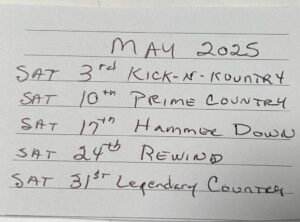 MAY 2025
SAT 3rd KICK-N-KOUNTRY
SAT 10th PRIME COUNTRY
SAT 17th HAMMER DOWN
SAT 24th REWIND
SAT 31st Legendary Country